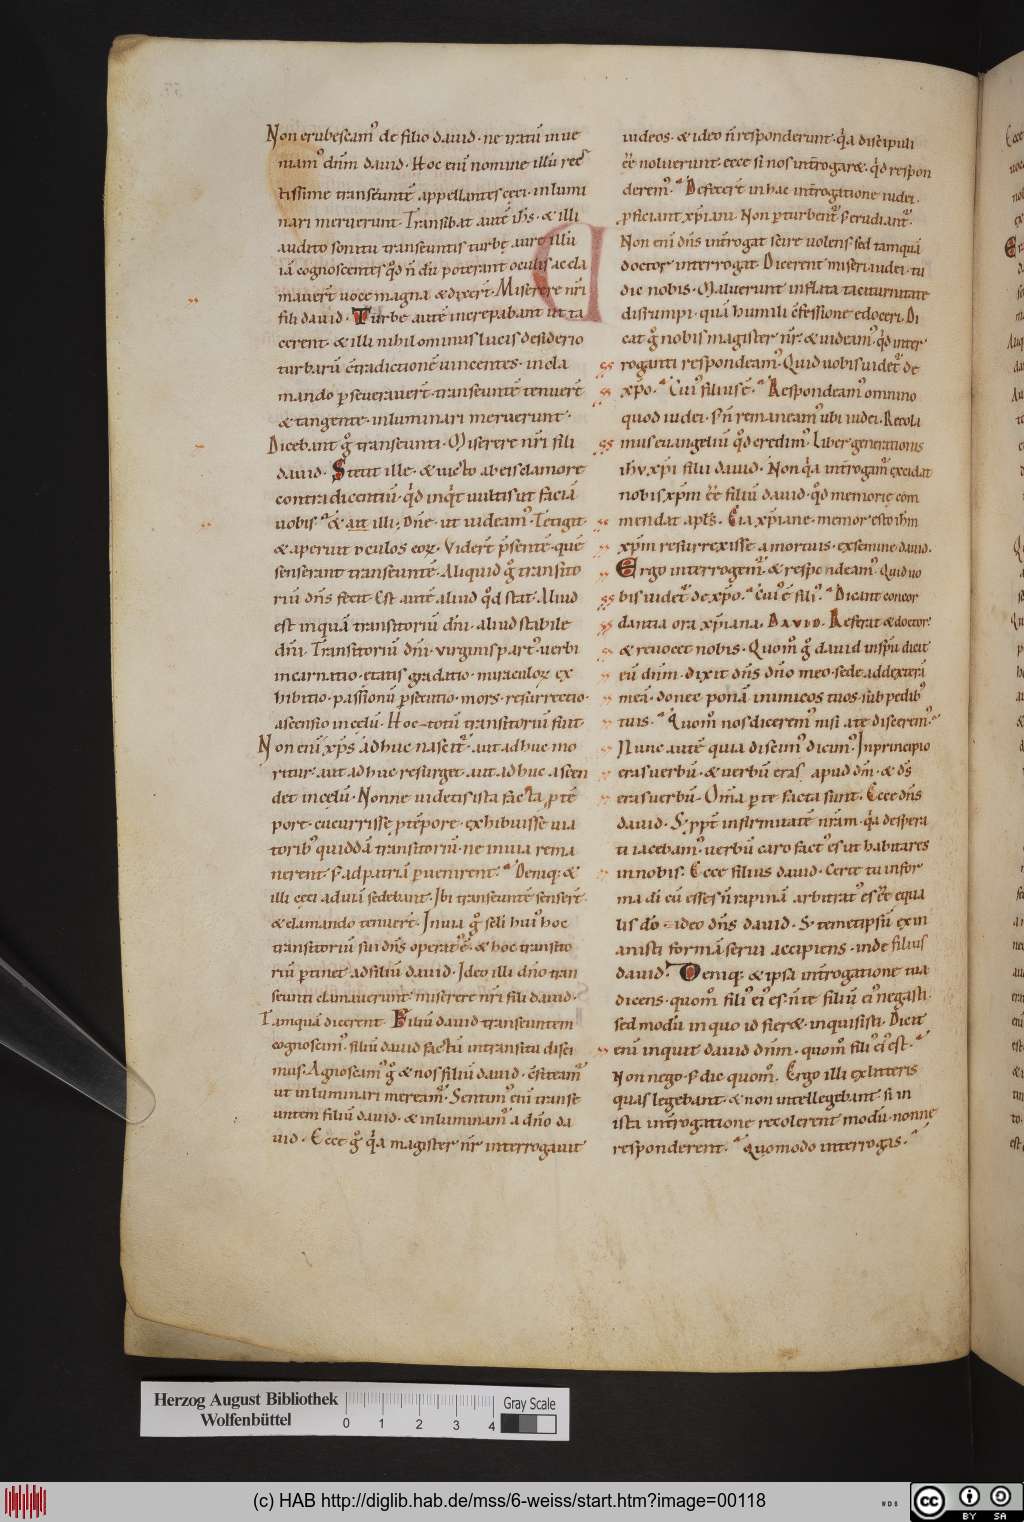 Non erubescam᾽ de filio dauid · ne iratū inue
niam᾽ dn̄m dauid · Hoc eni nomine illū rec
tissime transeuntē appellantes ceci · inlumi
nari meruerunt · Transibat autē ih̄s · & illi
audito sonitu transeuntis turbę aure illū
iā cognoscentes qd̄ n̄ dū poterant oculis · ac cla
mauer̄t uoce magna & dixer̄t · Miserere nr̄i
fili dauid · Turbe autē increpabant ut ta
cerent · & illi nihilominus lucis desiderio
turbarū c̄tradictionē uincentes · in cla
mando pseuerauer̄t · transeuntē tenuer̄t
& tangente · inluminari meruerunt ·
Dicebant g̊ transeunti · Miserere nr̄i fili
dauid · Stetit ille · & uicto ab eis clamore
contradicentiū · qd̄ inqt uultis ut faciā
uobis · & ait illi ; Dn̄e · ut uideam᾽ · Tetigit
& aperuit oculos eoꝝ · Vider̄t p̄sentē · quē
senserant transeuntē · Aliquid g̊ transito
riū dn̄s fecit · Est autē aliud qd̄ stat · Aliud
est inquā transitoriū dn̄i · aliud stabile
dn̄i · Transitoriū dn̄i · uirginis part᾽ · uerbi
incarnatio · etatis gradatio · miraculoꝝ ex
hibitio · passionū psecutio · mors · resurrectio ·
ascensio in celū · Hoc totū transitoriū fuit ·
Non eni xp̄s adhuc nascit᾽ · aut adhuc mo
ritur · aut adhuc resurget · aut adhuc ascen
det in celū · Nonne uidetis ista facta p tē
pore · cucurrisse p tēpore · exhibuisse uia
torib᾽ quiddā transitoriū · ne in uia rema
nerent · s̄ ad patriā puenirent · Deniq; &
illi ceci ad uiā sedebant · Ibi transeuntē senser̄t ·
& clamando tenuer̄t · In uia g̊ scli hui᾽ hoc
transitoriū sui dn̄s operat᾽ ē · & hoc transito
riū ptinet ad filiū dauid · Ideo illi dn̄o tran
seunti clamauerunt · miserere nr̄i fili dauid ·
Tamquā dicerent · Filiū dauid transeuntem
cognoscim᾽ · filiū dauid factū in transitu disci
mus · Agnoscam᾽ g̊ & nos filiū dauid · c̄fiteam᾽
ut inluminari meream᾽ · Sentim᾽ eni transe
untem filiū dauid · & inluminam᾽ a dn̄o da
uid · Ecce g̊ qa magister nr̄ interrogauit
iudeos · & ideo n̄ responderunt · qa discipuli
ēē noluerunt · ecce si nos int̄rogar& · qd̄ respon
derem᾽ · Defecer̄t in hac int̄rogatione iudei ·
pficiant xp̄iani · Non pturbent᾽ s̄ erudiant᾽ ·
Non eni dn̄s int̄rogat scire uolens · sed tamquā
doctor interrogat · Dicerent miseri iudei · tu
dic nobis · Maluerunt inflata taciturnitate
disrumpi · quā humili c̄fessione edoceri · Di
cat g̊ nobis magister nr̄ · & uideam᾽ qd̄ inter
roganti respondeam᾽ · Quid uobis uidet᾽ de
xp̄o · Cui᾽ filius ē · Respondeam᾽ omnino
quod iudei · s̄ n̄ remaneam᾽ ubi iudei · Recoli
mus euangeliū qd̄ credim᾽ · Liber generationis
ih̄u xp̄i filii dauid · Non qa int̄rogam᾽ excidat
nobis xp̄m ēē filiū dauid · qd̄ memorię com
mendat apl̄s · Eia xp̄iane · memor esto ih̄m
xp̄m resurrexisse a mortuis · ex semine dauid ·
Ergo interrogem᾽ · & respondeam᾽ · Quid uo
bis uidet᾽ de xp̄o · Cui᾽ ē fili᾽ · Dicant concor
dantia ora xp̄iana · DAVID · Referat & doctor
& reuocet nobis · Quom̊ g̊ dauid in sp̄u dicit
eū dn̄m · dixit dn̄s dn̄o meo · sede ad dexterā
meā · donec ponā inimicos tuos · sub pedib᾽
tuis · Quom̊ nos dicerem᾽ nisi a te discerem᾽
Nunc autē quia discim᾽ dicim᾽ · In principio
eras uerbū · & uerbū eras apud dm̄ · & ds̄
eras uerbū · Om̄a p te facta sunt · Ecce dn̄s
dauid · S; ppt̄ infirmitatē nr̄am · qa despera
ti iacebam᾽ · uerbū caro fact᾽ es · ut habitares
in nobis · Ecce filius dauid · Certe tu in for
ma di cū esses n̄ rapinā arbitrat᾽ es ēē equa
lis dō · ideo dn̄s dauid · S; temetipsū exin
anisti formā serui accipiens · inde filius
dauid · Deniq; & ipsa int̄rogatione tua
dicens · quom̊ fili᾽ ei᾽ es · n̄ te filiū ei᾽ negasti ·
sed modū in quo id fier& · inquisisti · Dicit
eni inquit dauid dn̄m · quom̊ fili᾽ ei᾽ est ·
Non nego · s̄ dic quom̊ · Ergo illi ex litteris
quas legebant · & non intellegebant · si in
ista int̄rogatione recolerent modū · nonne
responderent · Quomodo interrogas ·
Herzog August Bibliothek
Wolfenbüttel
0 1 2 3 4
Gray Scale
(c) HAB http://diglib.hab.de/mss/6-weiss/start.htm?image=00118
WDB
cc BY SA